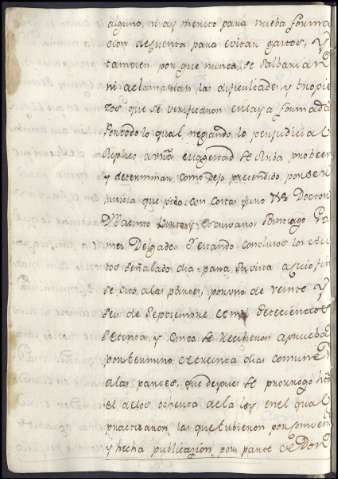 alguno, ni ay merito para nueba forma
cion ... para evitar gastos, y
tambien por que nunca se salbarian
ni aclararian las dificultades y tropie
sos que se verificaron en la ya formada
Por todo lo qual negando lo perjudicial
Suplico a Vtra ... se sirba probeer
y determinar como dejo pretendido por ser
justicia que pido, con costas juro Vs Doctor
Dn Jacinto ... Santiago
... Delgado. Y estando conclusos los autos
señalado dia para su vista
se cito a las partes, por uno de veinte y
seis de Septiembre de mil setecientos
setenta, y cinco se recibieron a prueba
por termino de treinta dias comunes
a las partes, que despues se prorrogo hasta
el de los ochenta de la ley en el qual
practicaron las que tubieron por conveniente
y hecha publicazion, por parte de Don